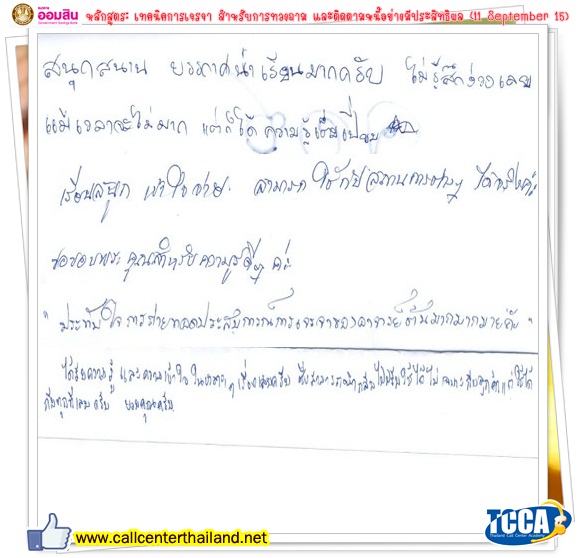 ออมสิน
Government Savings Bank
หลักสูตร เทคนิคการเจรจา สำหรับการทวงถาม และติดตามหนี้อย่างมีประสิทธิผล (11 September 15)
สนุกสนาน บรรยากาศน่าเรียนมากครับ ไม่รู้สึกง่วงเลย
แม้เวลาจะไม่มาก แต่ก็ได้ความรู้เต็มเปี่ยม
เรียนสนุก เข้าใจง่าย สามารถใช้กับสถานการณ์ต่างๆ ได้
ขอขอบพระคุณสำหรับความรู้ดีๆ ค่ะ
"ประทับใจการถ่ายทอดประสบการณ์การเจรจาของอาจารย์ มากมากมายค่ะ"
ได้รับความรู้ และความเข้าใจในหลายๆ เรื่องเลยครับ ซึ่งสามารถ ใช้ได้ ไม่ แต่ใช้ได้
กับทุกที่เลยครับ ขอบคุณครับ
www.callcenterthailand.net
TCCA
Thailand Call Center Academy